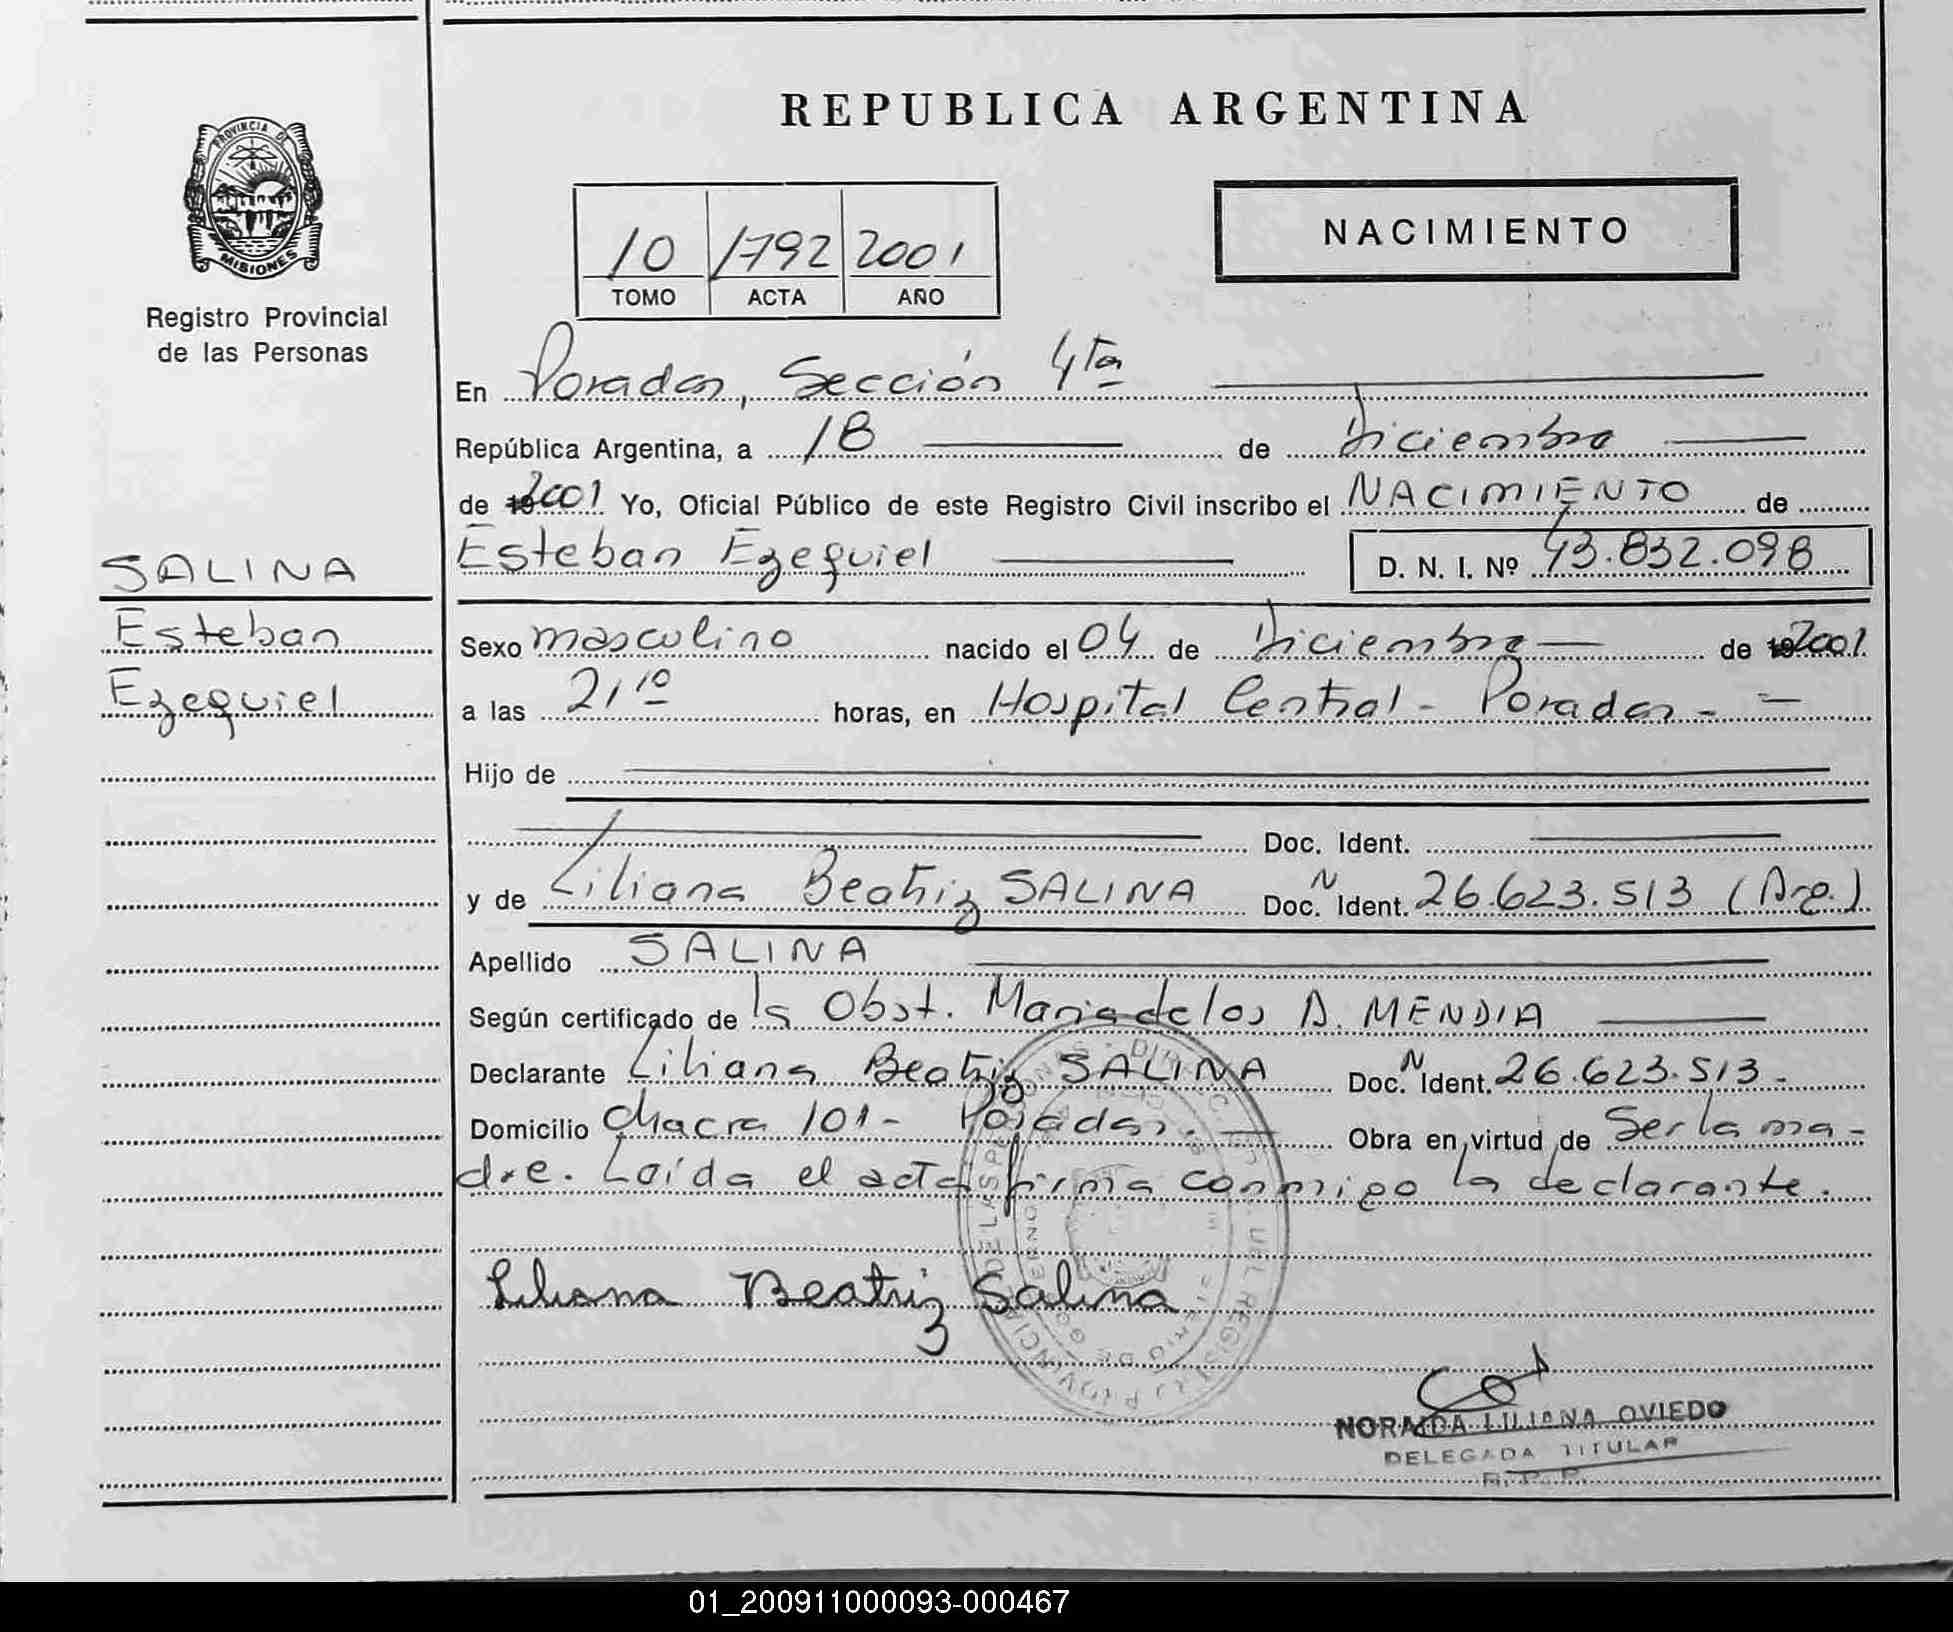 REPUBLICA ARGENTINA
PROVINCIA DE
MISIONES
Registro Provincial
de las Personas
10 1792 2001
TOMO ACTA AÑO
NACIMIENTO
En Posadas, Sección 4ta
República Argentina, a 18 de Diciembre
de 2001 Yo, Oficial Público de este Registro Civil inscribo el NACIMIENTO de
SALINA
Esteban Ezequiel D. N. I. Nº 43.832.098
Esteban
Sexo masculino nacido el 04 de Diciembre de 2001
Ezequiel
a las 21 10 horas, en Hospital Central - Posadas -
Hijo de
Doc. Ident.
y de Liliana Beatriz SALINA Doc. N Ident. 26.623.513 (Arg.)
Apellido SALINA
Según certificado de la Obst. Maria de los A. MENDIA
Declarante Liliana Beatriz SALINA Doc. N Ident. 26.623.513-
Domicilio Chacra 101- Posadas. Obra en virtud de Ser la ma-
dre. Leída el acta firma conmigo la declarante.
Liliana Beatriz Salina
NORAIDA LILIANA OVIEDO
DELEGADA TITULAR
R.P.P.
01_200911000093-000467